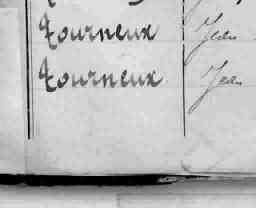 Tourneux Jean
Tourneux Jean